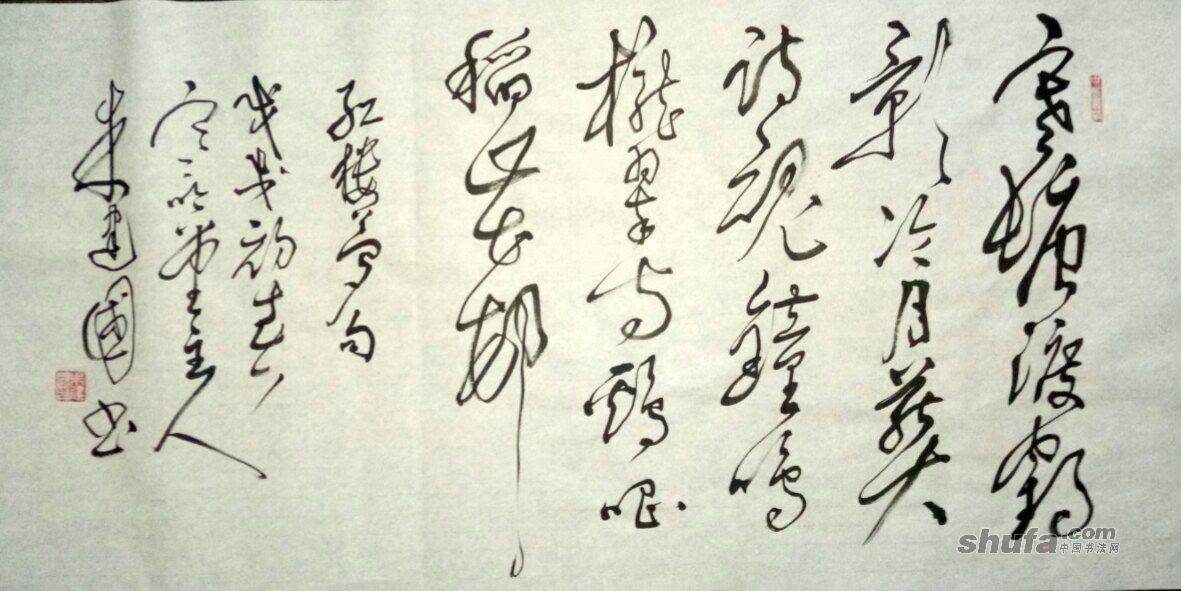 寒塘渡鹤
影冷月葬
诗魂钟鸣
栊翠寺鸡唱
稻花村
红楼梦句
戊戌初春
主人
朱建国书
shufa.com
中国书法网